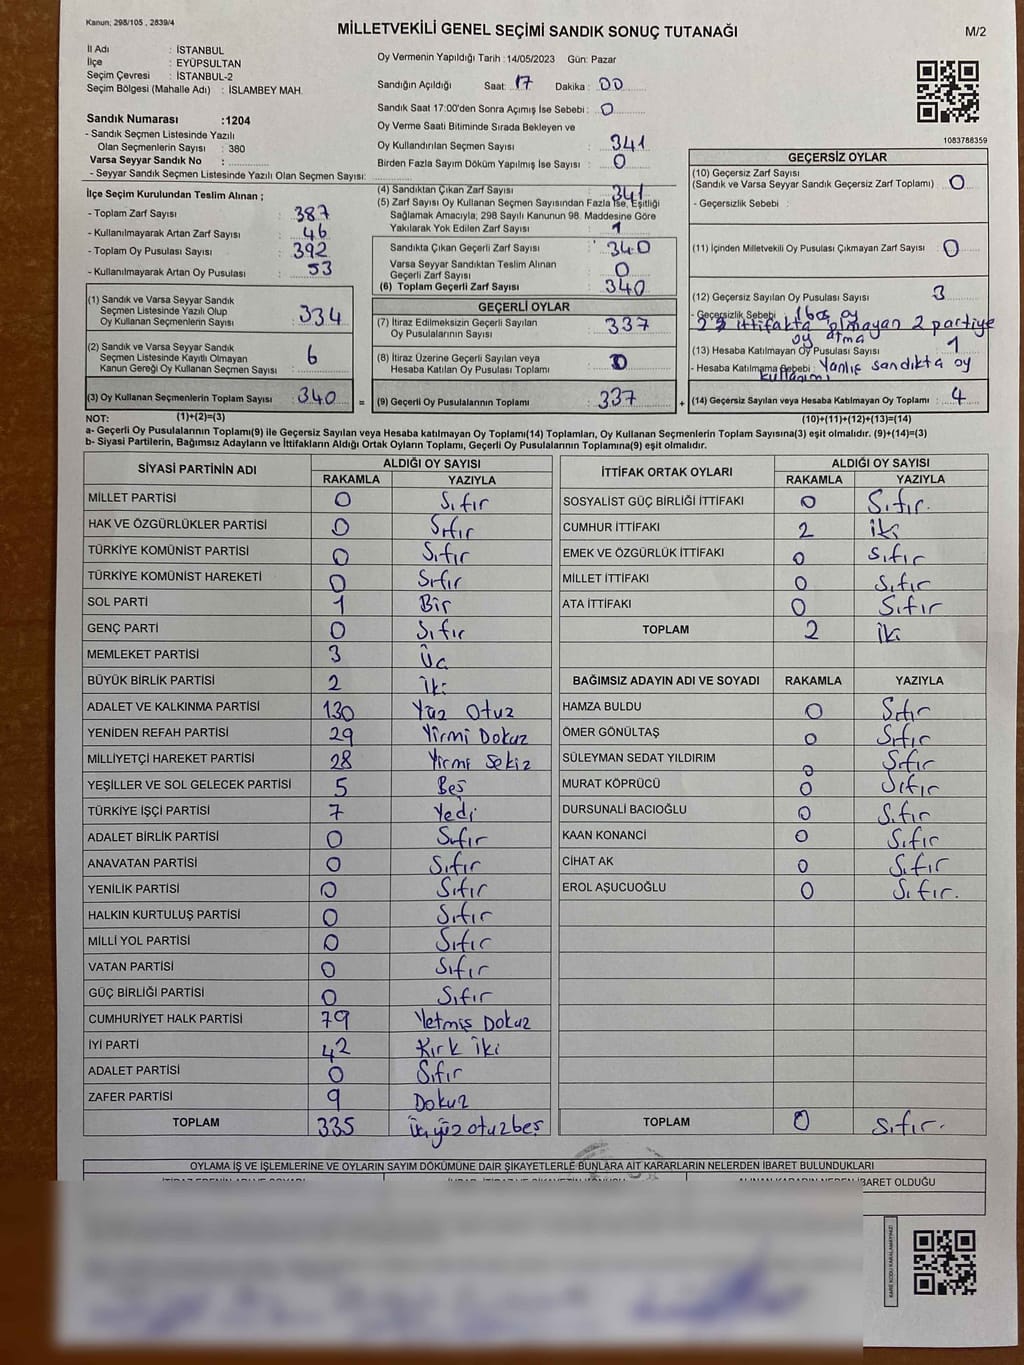 Kanun: 298/105 , 2839/4
MİLLETVEKİLİ GENEL SEÇİMİ SANDIK SONUÇ TUTANAĞI
M/2
İl Adı : İSTANBUL
İlçe : EYÜPSULTAN
Seçim Çevresi : İSTANBUL-2
Seçim Bölgesi (Mahalle Adı) : İSLAMBEY MAH.
Sandık Numarası :1204
- Sandık Seçmen Listesinde Yazılı
Olan Seçmenlerin Sayısı : 380
Varsa Seyyar Sandık No :
- Seyyar Sandık Seçmen Listesinde Yazılı Olan Seçmen Sayısı:
İlçe Seçim Kurulundan Teslim Alınan ;
- Toplam Zarf Sayısı : 387
- Kullanılmayarak Artan Zarf Sayısı : 46
- Toplam Oy Pusulası Sayısı : 392
- Kullanılmayarak Artan Oy Pusulası : 53
(1) Sandık ve Varsa Seyyar Sandık
Seçmen Listesinde Yazılı Olup
Oy Kullanan Seçmenlerin Sayısı : 334
(2) Sandık ve Varsa Seyyar Sandık
Seçmen Listesinde Kayıtlı Olmayan
Kanun Gereği Oy Kullanan Seçmen Sayısı : 6
(3) Oy Kullanan Seçmenlerin Toplam Sayısı : 340
(1)+(2)=(3)
Oy Vermenin Yapıldığı Tarih : 14/05/2023 Gün: Pazar
Sandığın Açıldığı Saat: 17 Dakika : 00
Sandık Saat 17:00'den Sonra Açımış İse Sebebi : 0
Oy Verme Saati Bitiminde Sırada Bekleyen ve
Oy Kullandırılan Seçmen Sayısı : 341
Birden Fazla Sayım Döküm Yapılmış İse Sayısı : 0
(4) Sandıktan Çıkan Zarf Sayısı : 341
(5) Zarf Sayısı Oy Kullanan Seçmen Sayısından Fazla İse, Eşitliği
Sağlamak Amacıyla; 298 Sayılı Kanunun 98. Maddesine Göre
Yakılarak Yok Edilen Zarf Sayısı : 1
Sandıkta Çıkan Geçerli Zarf Sayısı : 340
Varsa Seyyar Sandıktan Teslim Alınan
Geçerli Zarf Sayısı : 0
(6) Toplam Geçerli Zarf Sayısı : 340
GEÇERLİ OYLAR
(7) İtiraz Edilmeksizin Geçerli Sayılan
Oy Pusulalarının Sayısı : 337
(8) İtiraz Üzerine Geçerli Sayılan veya
Hesaba Katılan Oy Pusulası Toplamı : 0
= (9) Geçerli Oy Pusulalarının Toplamı : 337 +
1083788359
GEÇERSİZ OYLAR
(10) Geçersiz Zarf Sayısı
(Sandık ve Varsa Seyyar Sandık Geçersiz Zarf Toplamı) : 0
- Geçersizlik Sebebi :
(11) İçinden Milletvekili Oy Pusulası Çıkmayan Zarf Sayısı : 0
(12) Geçersiz Sayılan Oy Pusulası Sayısı : 3
- Geçersizlik Sebebi : 1 boş oy
2 ittifakta olmayan 2 partiye
oy atma
(13) Hesaba Katılmayan Oy Pusulası Sayısı : 1
- Hesaba Katılmama Sebebi : Yanlış sandıkta oy
kullanımı
(14) Geçersiz Sayılan veya Hesaba Katılmayan Oy Toplamı : 4
(10)+(11)+(12)+(13)=(14)
NOT:
a- Geçerli Oy Pusulalarının Toplamı(9) ile Geçersiz Sayılan veya Hesaba katılmayan Oy Toplamı(14) Toplamları, Oy Kullanan Seçmenlerin Toplam Sayısına(3) eşit olmalıdır. (9)+(14)=(3)
b- Siyasi Partilerin, Bağımsız Adayların ve İttifakların Aldığı Ortak Oyların Toplamı, Geçerli Oy Pusulalarının Toplamına(9) eşit olmalıdır.
SİYASİ PARTİNİN ADI ALDIĞI OY SAYISI
RAKAMLA YAZIYLA
MİLLET PARTİSİ 0 Sıfır
HAK VE ÖZGÜRLÜKLER PARTİSİ 0 Sıfır
TÜRKİYE KOMÜNİST PARTİSİ 0 Sıfır
TÜRKİYE KOMÜNİST HAREKETİ 0 Sıfır
SOL PARTİ 1 Bir
GENÇ PARTİ 0 Sıfır
MEMLEKET PARTİSİ 3 Üç
BÜYÜK BİRLİK PARTİSİ 2 İki
ADALET VE KALKINMA PARTİSİ 130 Yüz Otuz
YENİDEN REFAH PARTİSİ 29 Yirmi Dokuz
MİLLİYETÇİ HAREKET PARTİSİ 28 Yirmi Sekiz
YEŞİLLER VE SOL GELECEK PARTİSİ 5 Beş
TÜRKİYE İŞÇİ PARTİSİ 7 Yedi
ADALET BİRLİK PARTİSİ 0 Sıfır
ANAVATAN PARTİSİ 0 Sıfır
YENİLİK PARTİSİ 0 Sıfır
HALKIN KURTULUŞ PARTİSİ 0 Sıfır
MİLLİ YOL PARTİSİ 0 Sıfır
VATAN PARTİSİ 0 Sıfır
GÜÇ BİRLİĞİ PARTİSİ 0 Sıfır
CUMHURİYET HALK PARTİSİ 79 Yetmiş Dokuz
İYİ PARTİ 42 Kırk iki
ADALET PARTİSİ 0 Sıfır
ZAFER PARTİSİ 9 Dokuz
TOPLAM 335 üçyüzotuzbeş
İTTİFAK ORTAK OYLARI ALDIĞI OY SAYISI
RAKAMLA YAZIYLA
SOSYALİST GÜÇ BİRLİĞİ İTTİFAKI 0 Sıfır.
CUMHUR İTTİFAKI 2 iki
EMEK VE ÖZGÜRLÜK İTTİFAKI 0 sıfır
MİLLET İTTİFAKI 0 Sıfır
ATA İTTİFAKI 0 Sıfır
TOPLAM 2 iki
BAĞIMSIZ ADAYIN ADI VE SOYADI RAKAMLA YAZIYLA
HAMZA BULDU 0 Sıfır
ÖMER GÖNÜLTAŞ 0 Sıfır
SÜLEYMAN SEDAT YILDIRIM 0 Sıfır
MURAT KÖPRÜCÜ 0 Sıfır
DURSUNALİ BACIOĞLU 0 Sıfır
KAAN KONANCİ 0 Sıfır
CİHAT AK 0 Sıfır
EROL AŞUCUOĞLU 0 Sıfır.
TOPLAM 0 Sıfır.
OYLAMA İŞ VE İŞLEMLERİNE VE OYLARIN SAYIM DÖKÜMÜNE DAİR ŞİKAYETLERLE BUNLARA AİT KARARLARIN NELERDEN İBARET BULUNDUKLARI
İBARET OLDUĞU